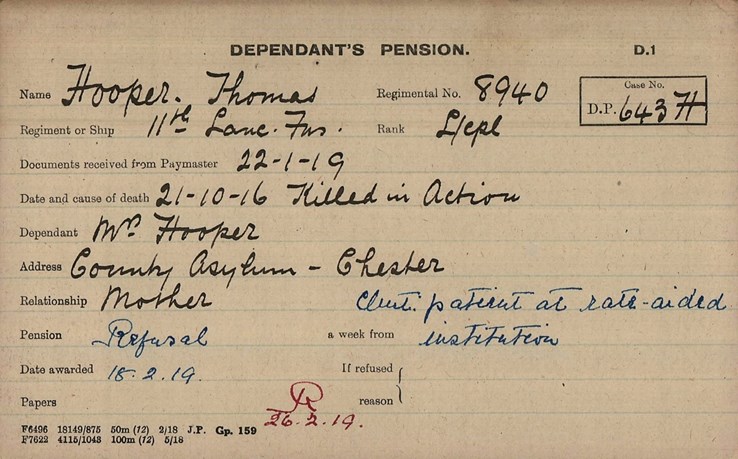 DEPENDANT'S PENSION. D.1
Name Hooper. Thomas Regimental No. 8940 Case No.
D.P. 643 H
Regiment or Ship 11th Lanc. Fus. Rank L/cpl
Documents received from Paymaster 22-1-19
Date and cause of death 21-10-16 Killed in Action
Dependant Mrs Hooper
Address County Asylum - Chester
Relationship Mother patient at rate-aided
Pension Refusal a week from institution
Date awarded 18.2.19. If refused
Papers R reason
26.2.19.
F6496 18149/875 50m (12) 2/18 J.P. Gp. 159
F7622 4115/1043 100m (12) 5/18